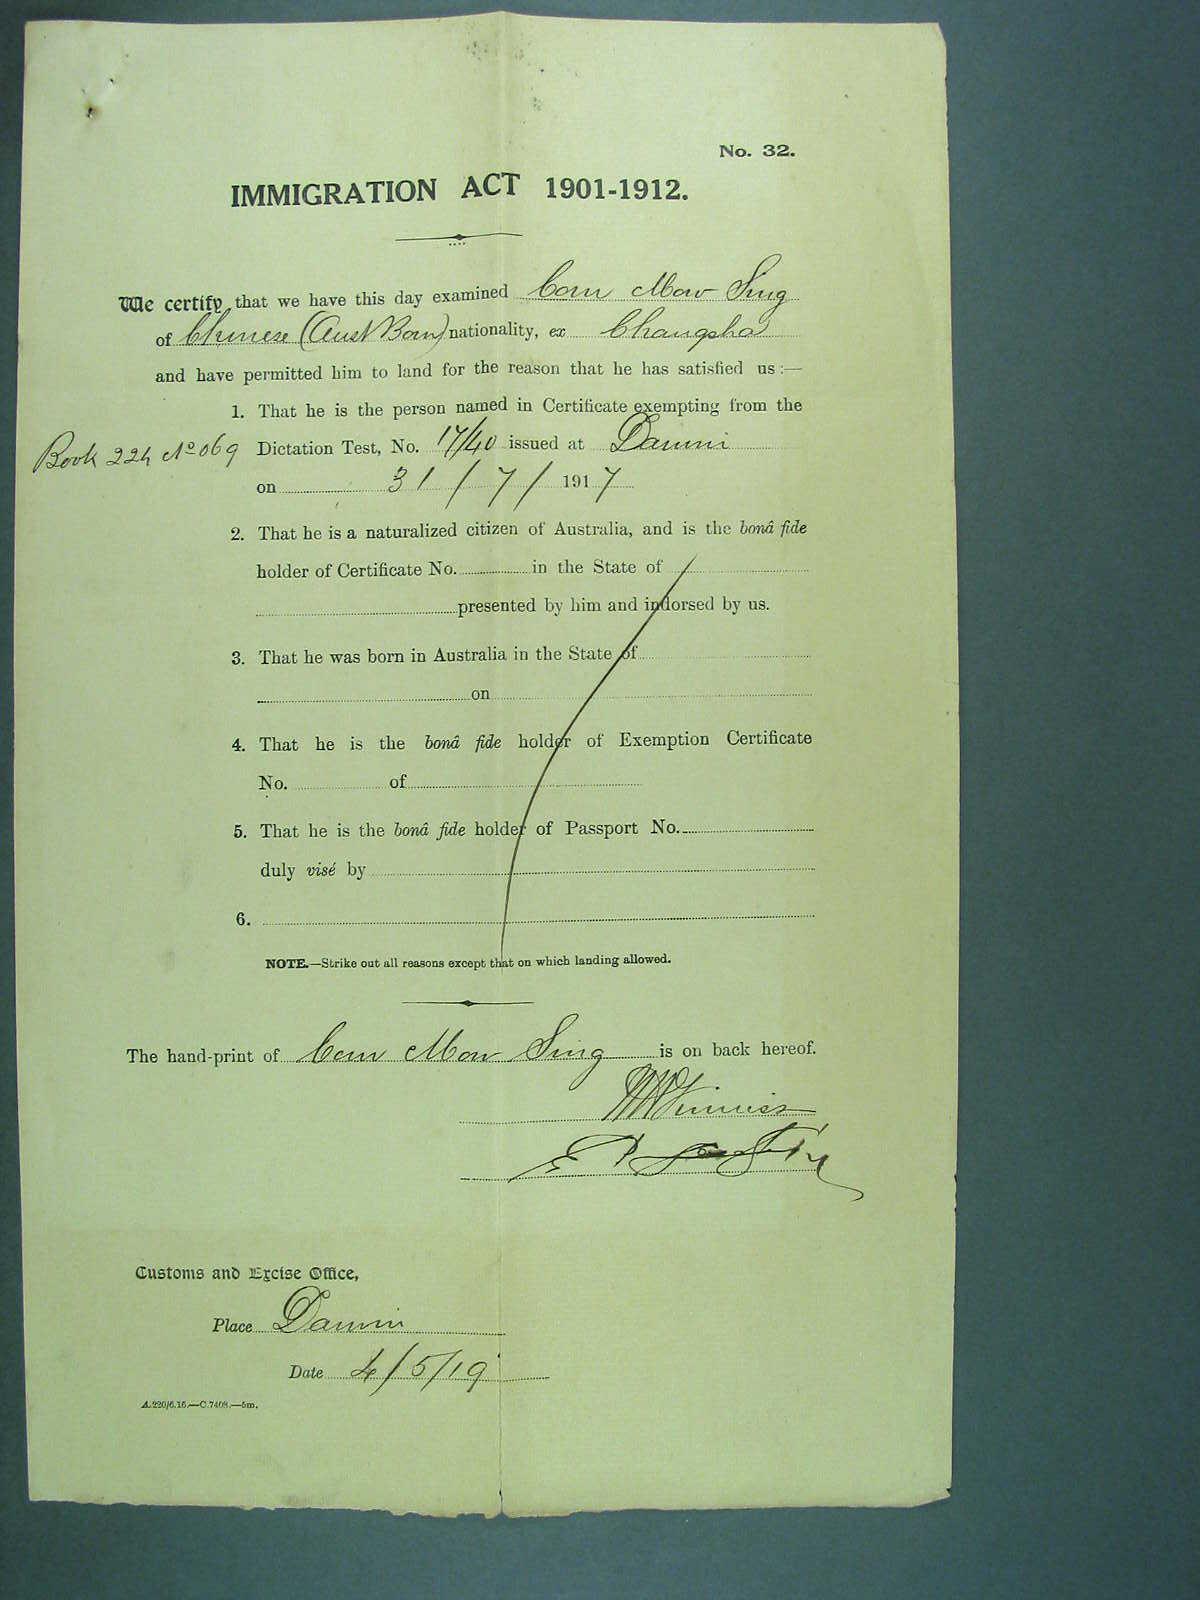 No. 32.
IMMIGRATION ACT 1901-1912.
We certify that we have this day examined Com Mow Sing
of Chinese (Aust Born) nationality, ex Changsha
and have permitted him to land for the reason that he has satisfied us :—
1. That he is the person named in Certificate exempting from the
Book 224 No 069 Dictation Test, No. 17/40 issued at Darwin
on 31 / 7 / 1917
2. That he is a naturalized citizen of Australia, and is the bonâ fide
holder of Certificate No. in the State of
presented by him and indorsed by us.
3. That he was born in Australia in the State of
on
4. That he is the bonâ fide holder of Exemption Certificate
No. of
5. That he is the bonâ fide holder of Passport No.
duly visé by
6.
NOTE.—Strike out all reasons except that on which landing allowed.
The hand-print of Com Mow Sing is on back hereof.
Customs and Excise Office,
Place Darwin
Date 4/5/19
A.220/6.16.—C.7408.—5m.